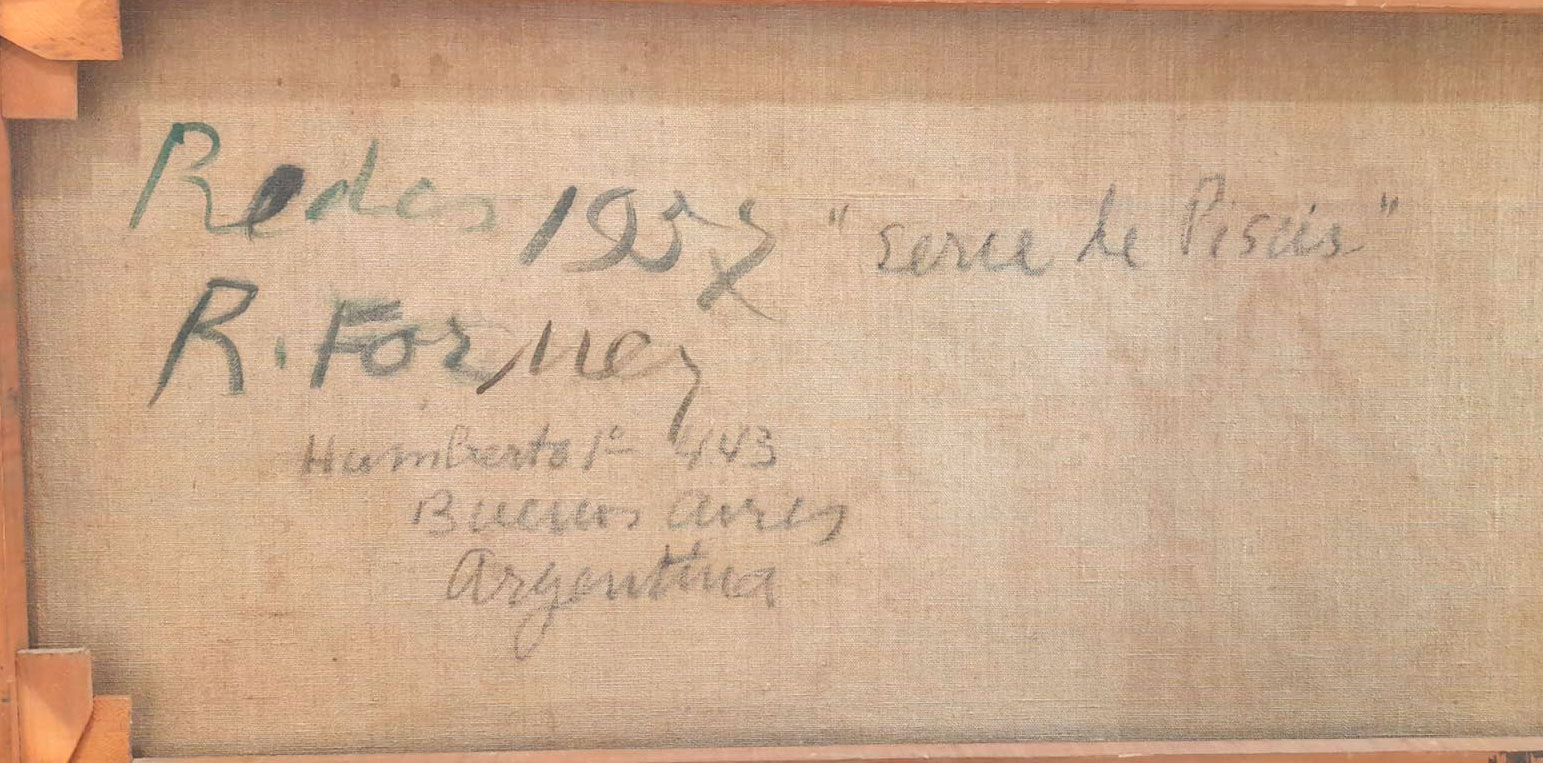 Redes 1957 "serie de Piscis"
R. Forner
Humberto 1º 443
Buenos Aires
Argentina